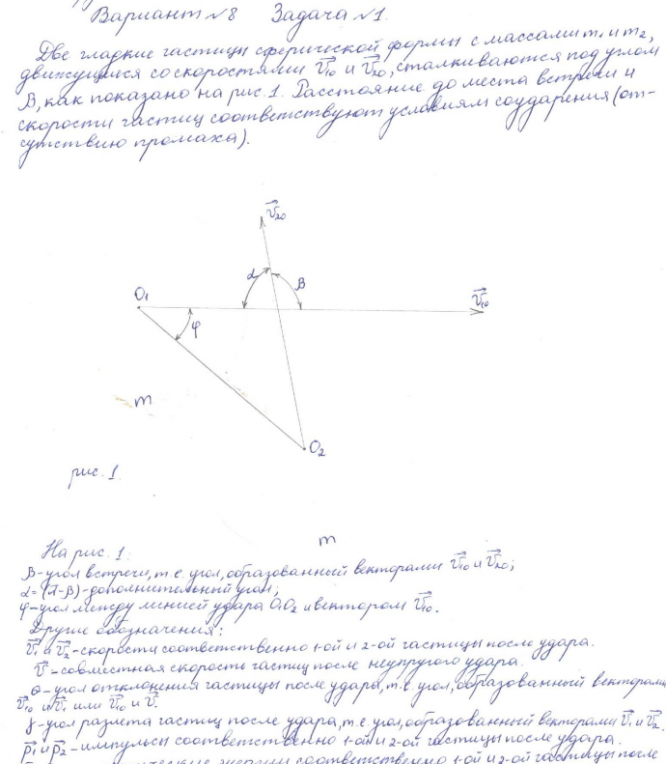 Вариант №8 Задача №1.
Две гладкие частицы сферической формы с массами m₁ и m₂,
движущиеся со скоростями V₁₀ и V₂₀, сталкиваются под углом
β, как показано на рис. 1. Расстояние до места встречи и
скорости частиц соответствуют условиям соударения (от-
сутствию промаха).
V₂₀
α β
O₁
V₁₀
φ
m
O₂
рис. 1.
m
На рис. 1:
β-угол встречи, т.е. угол, образованный векторами V₁₀ и V₂₀;
α=(π-β)-дополнительный угол;
φ-угол между линией удара O₁O₂ и вектором V₁₀.
Другие обозначения:
V₁ и V₂-скорости соответственно 1-ой и 2-ой частицы после удара.
V-совместная скорость частиц после неупругого удара.
θ-угол отклонения частицы после удара, т.е. угол, образованный векторами
V₁₀ и V₁ или V₁₀ и V.
γ-угол разлета частиц после удара, т.е. угол, образованный векторами V₁ и V₂.
p₁ и p₂-импульсы соответственно 1-ой и 2-ой частицы после удара.
энергии соответственно 1-ой и 2-ой частицы после